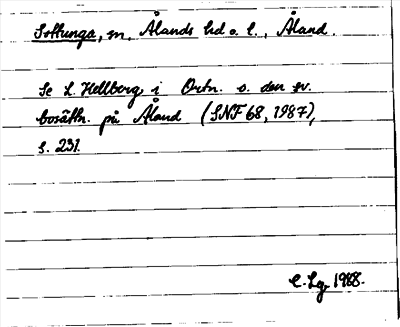 Sottunga, sn, Ålands hd o. l., Åland.
Se L. Hellberg i Ortn. o. den sv.
bosättn. på Åland (SNF 68, 1987),
s. 231.
C. Lg 1988.